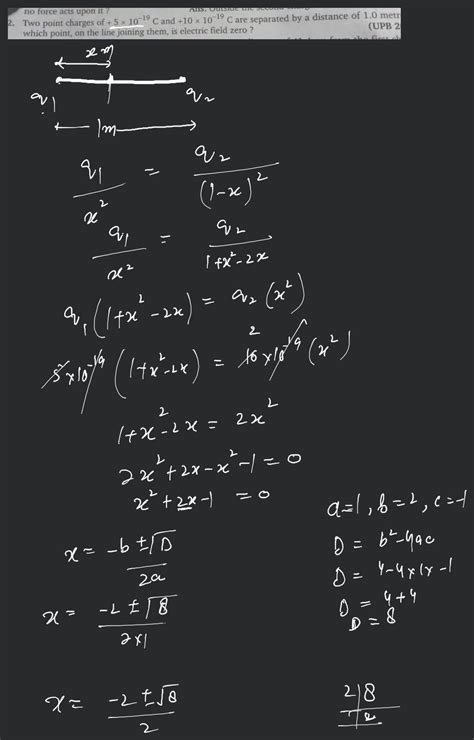 no force acts upon it ?
2. Two point charges of +5 × 10⁻¹⁹ C and +10 × 10⁻¹⁹ C are separated by a distance of 1.0 metr
which point, on the line joining them, is electric field zero ? (UPB 2
x m
q₁ q₂
1m
q₁/x² = q₂/(1-x)²
q₁/x² = q₂/1+x²-2x
q₁(1+x²-2x) = q₂(x²)
5×10⁻¹⁹(1+x²-2x) = 10×10⁻¹⁹(x²)
2
1+x²-2x = 2x²
2x²+2x-x²-1=0
x²+2x-1 =0
a=1, b=2, c=-1
x = -b±√D/2a
D = b²-4ac
D = 4-4×1×-1
x = -2±√8/2×1
D = 4+4
D = 8
x = -2±√8/2
2|8